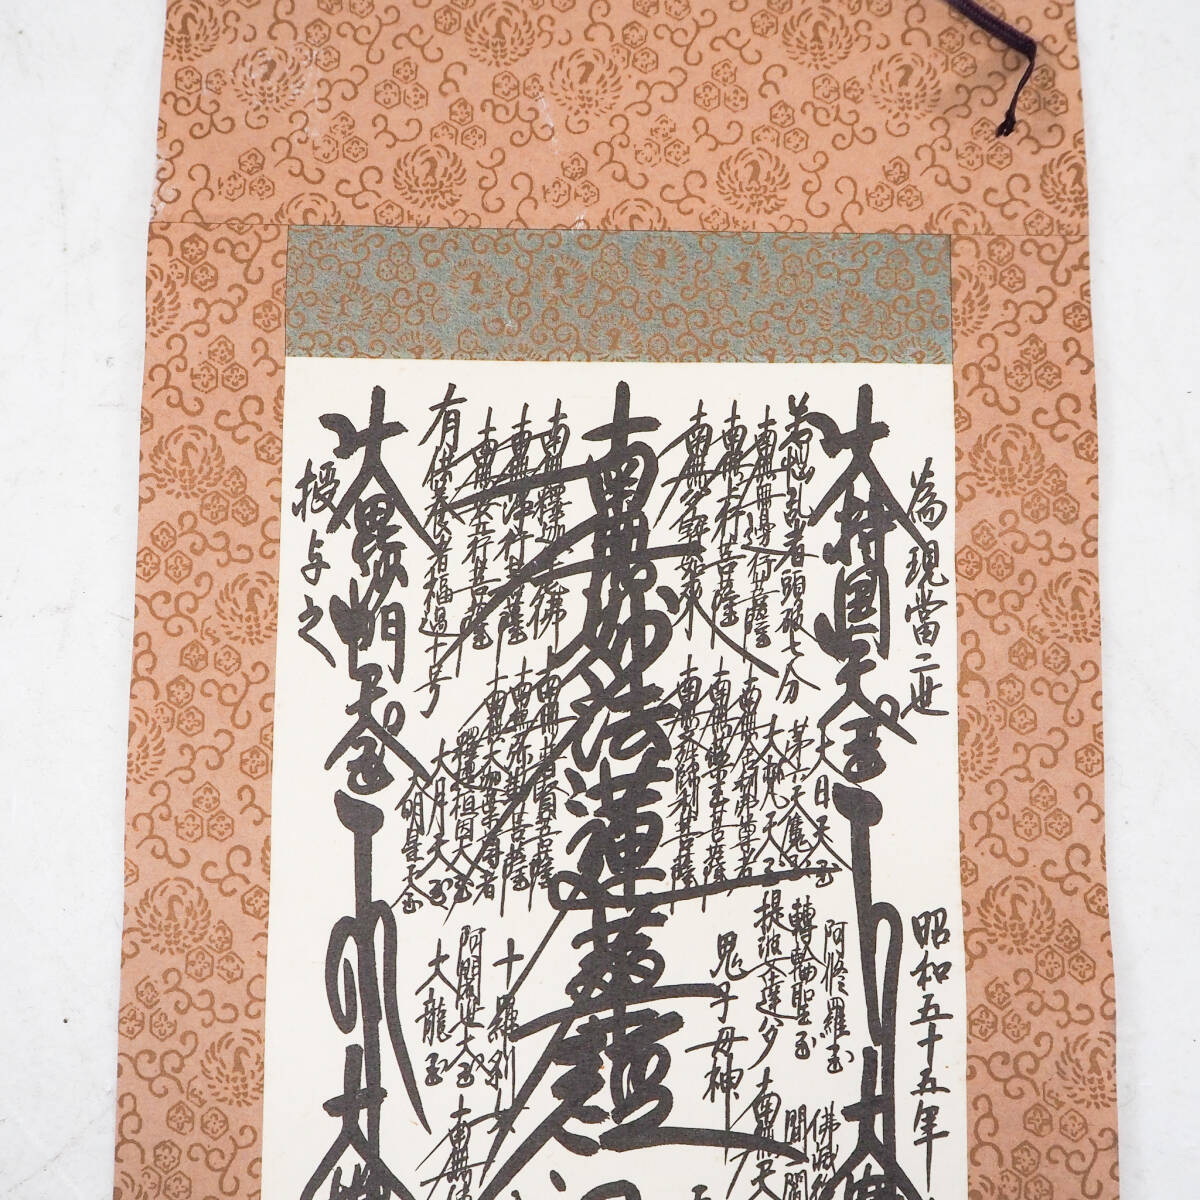 為現當二世
昭和五十五年
大持國天王
大日天王
阿修羅王
第六天魔王
轉輪聖王
若惱乱者頭破七分
大梵天王
提婆達多
南無無邊行菩薩
南無上行菩薩
南無多宝如来
南無舎利弗尊者
南無薬王菩薩
南無文殊師利菩薩
鬼子母神
南無妙法蓮華經
南無釋迦牟尼佛
南無浄行菩薩
南無安立行菩薩
南無普賢菩薩
南無弥勒菩薩
南無大迦葉尊者
釋提桓因大王
大月天王
大明星天王
十羅刹女
阿闍世大王
大龍王
有供養者福過十号
大毘沙門天王
授与之